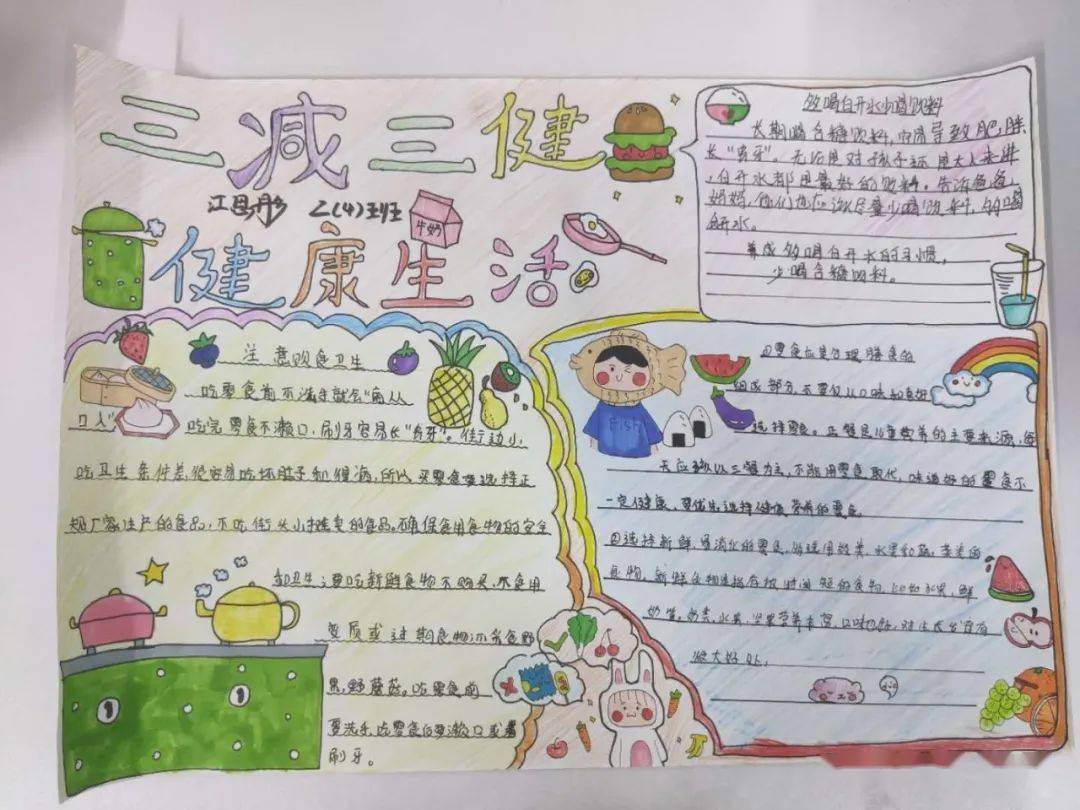 三减三健
江 彤 乙(4)班
牛奶
健康生活
多喝白开水少喝饮料
长期喝含糖饮料,容易导致肥胖
长“虫牙”。无论是对孩子还是大人来讲
,白开水都是最好的饮料。告诉爸爸
妈妈,他们也应该尽量少喝饮料,多喝
开水。
养成多喝白开水的习惯,
少喝含糖饮料。
注意败食卫生
吃零食前不洗手就会“病从
口入”
吃完零食不漱口,刷牙容易长“虫牙”。街边小
吃卫生条件差,很容易吃坏肚子和 ,所以,买零食要选择正
规厂家生产的食品,不吃街头小摊卖的食品。确保食用食物的安全
和卫生;要吃新鲜食物不购买、不食用
变质或过期食物
,野蘑菇。吃零食前
要洗手,吃零食后要漱口或者
刷牙。
Fish
零食应是合理膳食的
组成部分,不要仅以口味和喜好
选择零食。正餐是儿童营养的主要来源,
去应该以三餐为主,不能用零食取代,味道好的零食不
一定健康,要优先选择健康、营养的零食
选择新鲜,易消化的零食, 选用奶类,水果和蔬,
食物,新鲜食物是指存放时间短的食物,比如水果,鲜
奶等。奶类,水果,坚果营养丰富,口味
很大好处,